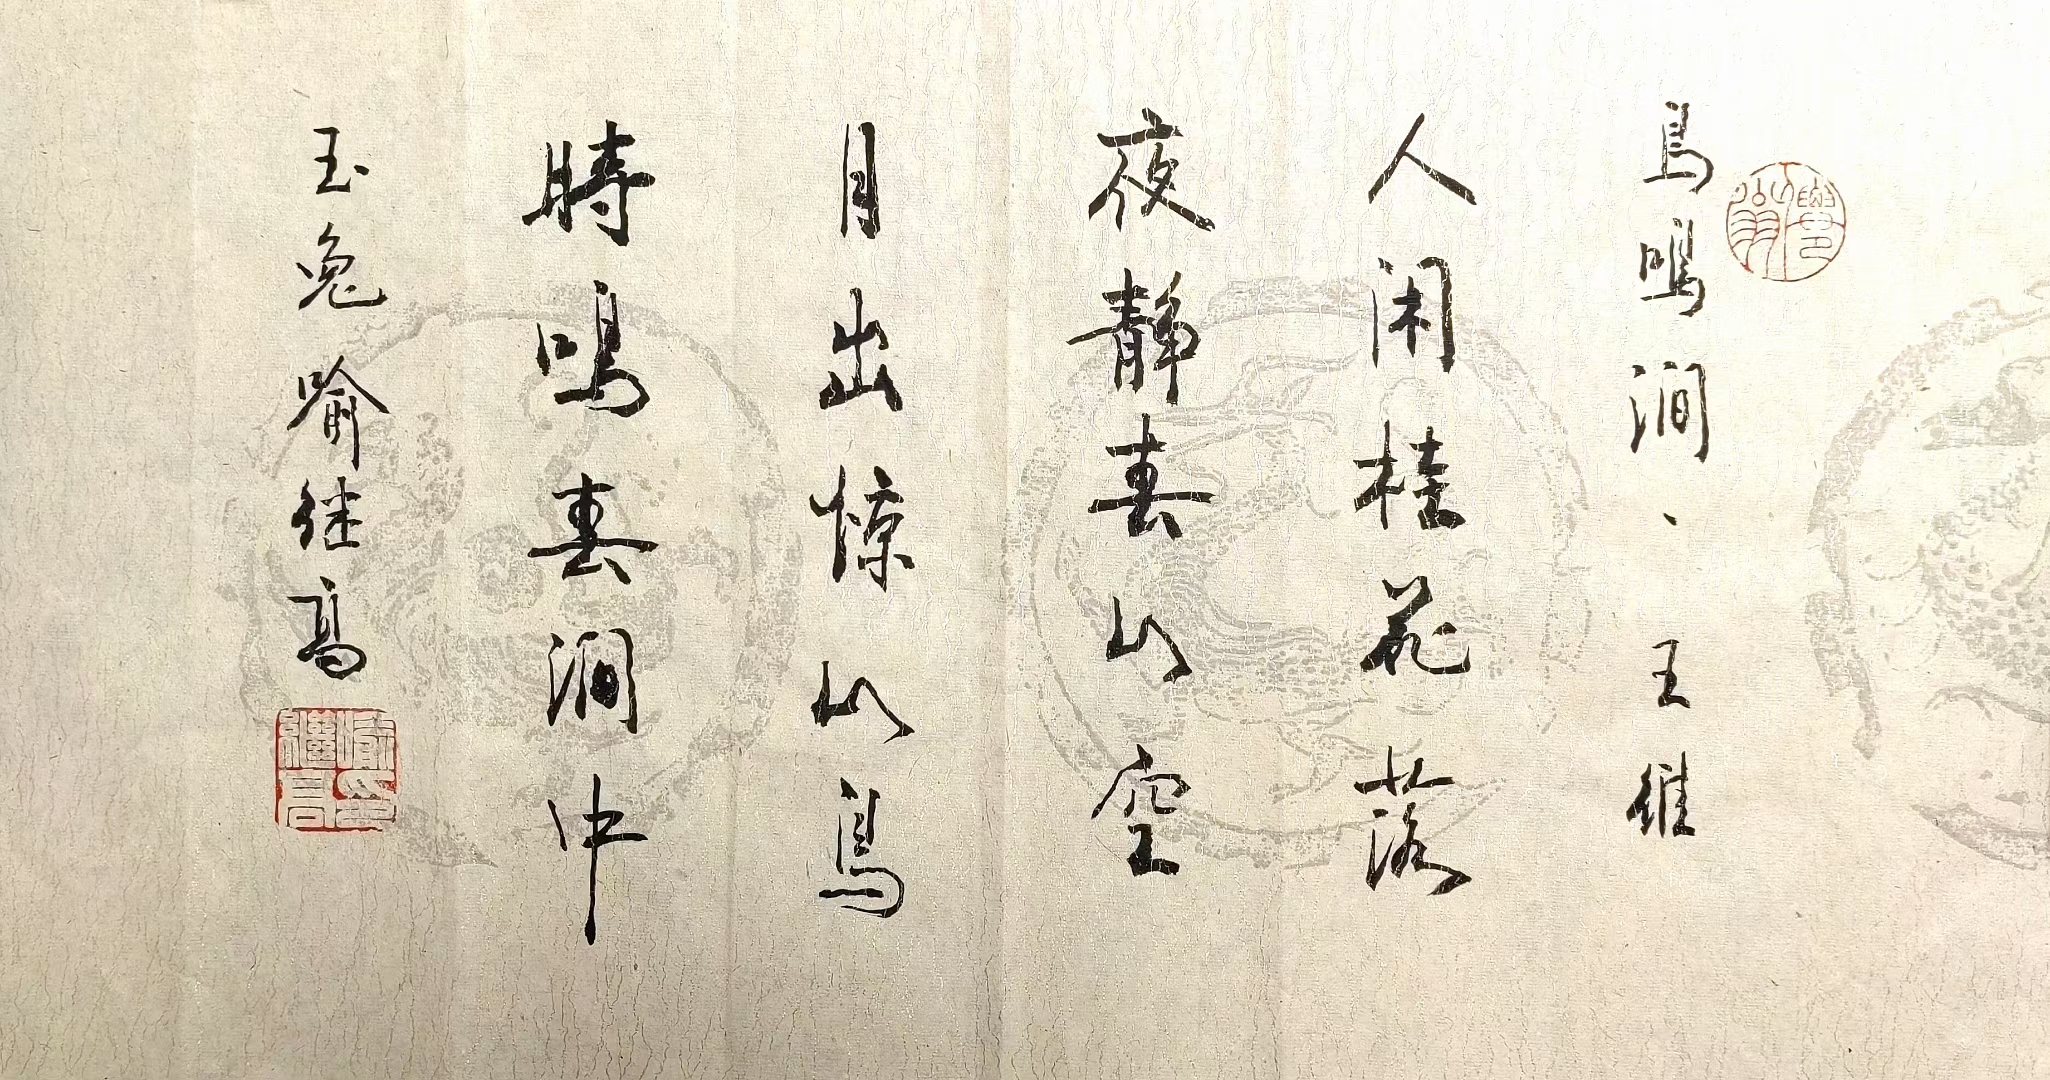 鳥鳴澗、王維
人闲桂花落
夜静春山空
月出惊山鳥
時鳴春澗中
玉兔喻继高
喻继高印